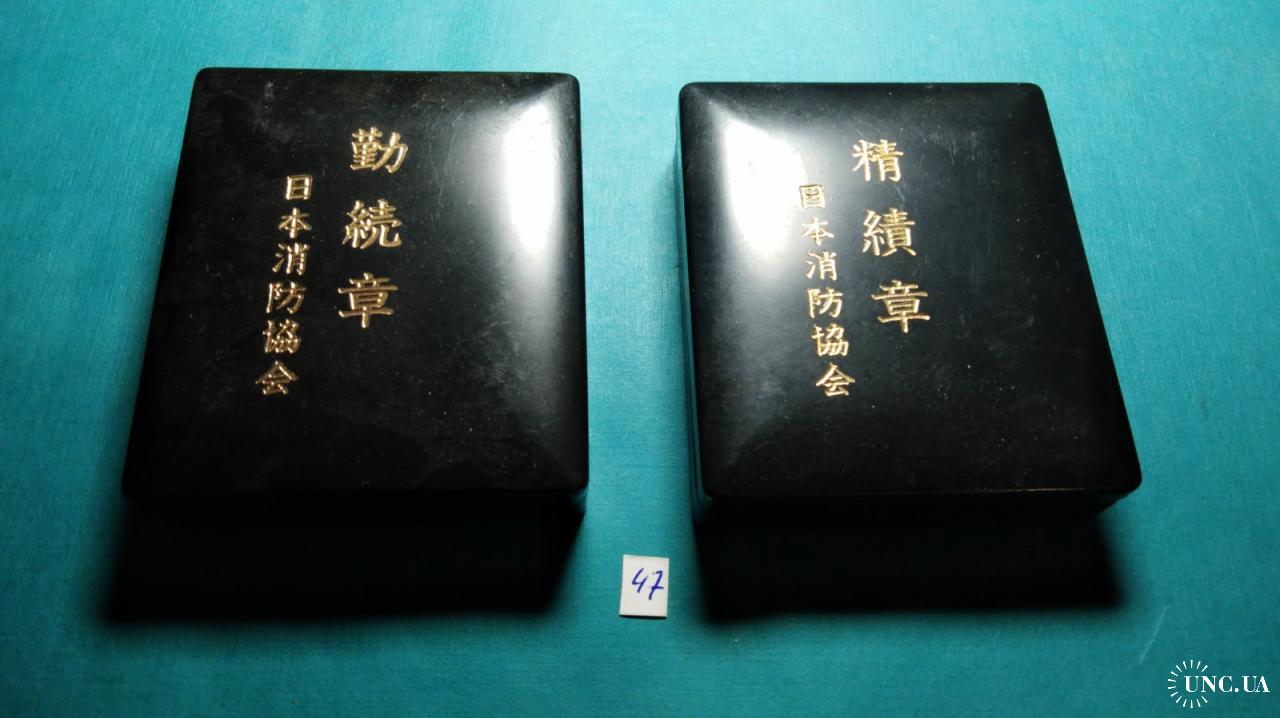 勤続章
日本消防協会
精績章
日本消防協会
47
UNC.UA